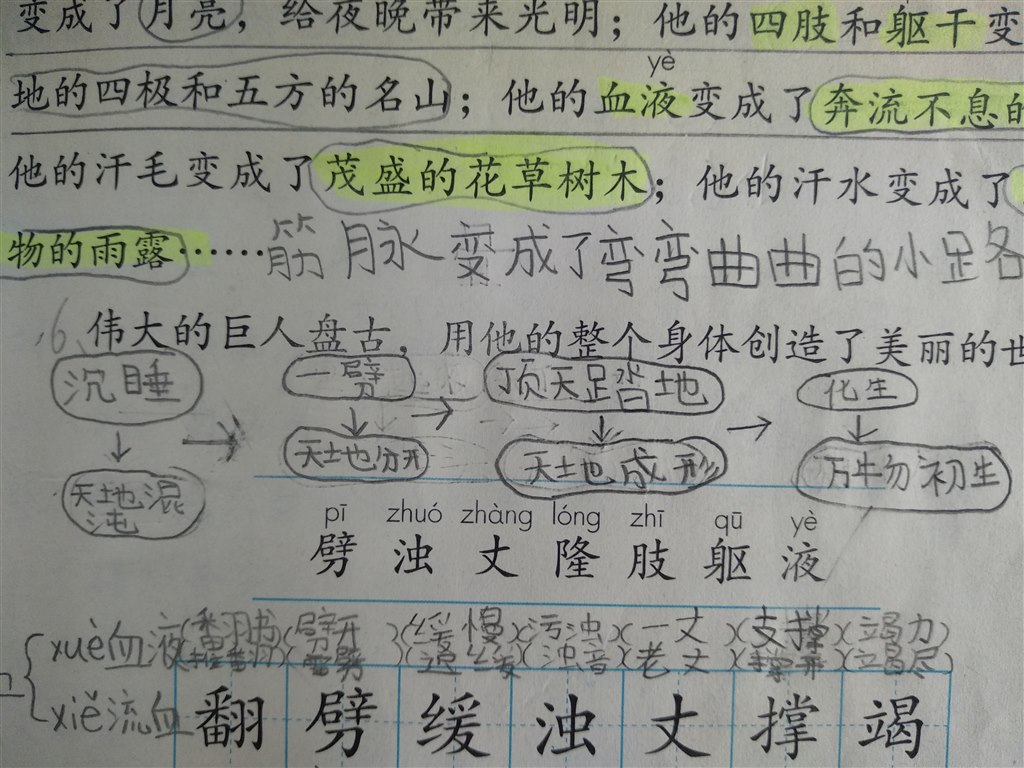 变成了月亮，给夜晚带来光明；他的四肢和躯干变
地的四极和五方的名山；他的血液变成了奔流不息的
yè
他的汗毛变成了茂盛的花草树木；他的汗水变成了
物的雨露……筋脉变成了弯弯曲曲的小足各
6、伟大的巨人盘古，用他的整个身体创造了美丽的世
沉睡 → 一劈 → 顶天足踏地 → 化生
天地混沌 天地分开 天地成形 万牛勿初生
pī zhuó zhàng lóng zhī qū yè
劈 浊 丈 隆 肢 躯 液
xuè血液(翻书)(劈开)(缓慢)(污浊)(一丈)(支撑)(竭力)
(浊音)(老丈)(撑开)(竭尽)
xiě流血
翻 劈 缓 浊 丈 撑 竭